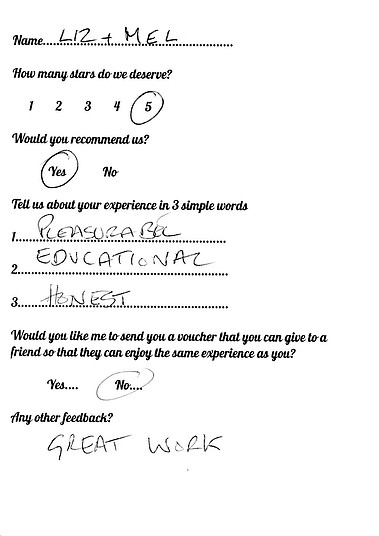 Name....LIZ + MEL
How many stars do we deserve?
1 2 3 4 5
Would you recommend us?
Yes No
Tell us about your experience in 3 simple words
1. PLEASURABEL
2. EDUCATIONAL
3. HONEST
Would you like me to send you a voucher that you can give to a
friend so that they can enjoy the same experience as you?
Yes.... No....
Any other feedback?
GREAT WORK